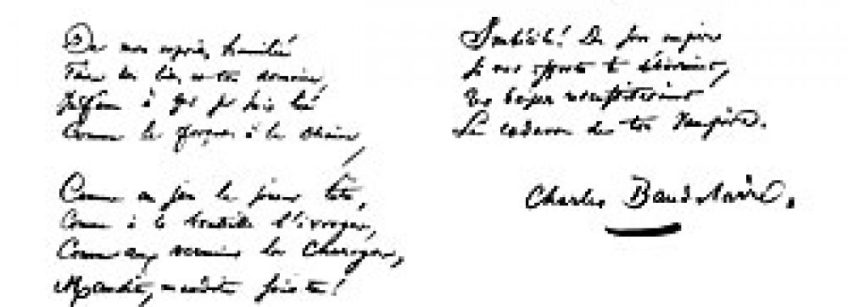 De mon esprit humilié
Faire ton lit, et ton domaine,
Infâme à qui je suis lié
Comme le forçat à la chaîne,
Comme au jeu le joueur têtu,
Comme à la bouteille l'ivrogne,
Comme aux vermines la Charogne,
Maudite, maudite sois-tu!
Imbécile! De son empire
Si nos efforts te délivraient,
Tes baisers ressusciteraient
Le cadavre de ton Vampire.
Charles Baudelaire.